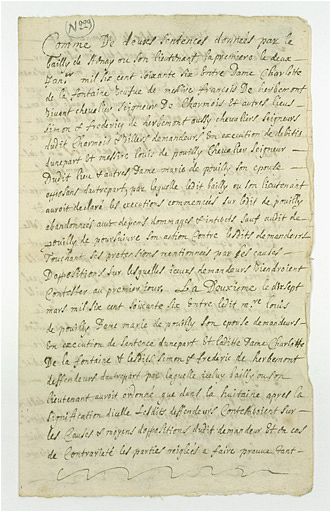 N 229
Comme De deux sentences donnees par le
bailly de ou son lieutenant la premiere le deux
Janr mil six cent soixante six Entre Dame Charlotte
de la fontaine vefue de messire francois De herbemont
vivant chevalier seigneur De Charmois Et autres lieux
simon & frederic de herbemont aussy chevaliers seigneurs
dudit Charmois & Villers demandeurs En execution
dunepart et messire louis de pouilly Chevalier seigneur
Dudit lieu & autres Dame marie de pouilly son epouse
opposans dautrepart, par laquelle ledit bailly ou son lieutenant
auroit declaré les executions commencées sur ledit de pouilly
abandonnées aux depens dommages & interests sauf audit de
pouilly de poursuivre son action Contre lesdits demandeurs
Touchant ses pretensions mentionnees par ses causes
Dopposition sur lesquelles iceux demandeurs viendroient
Contester au premier jour. La Deuxieme le dixsept
mars mil six cent soixante six Entre ledit mre louis
de pouilly Dame marie de pouilly son epouse demandeurs
En execution de sentence dunepart Et laditte Dame Charlotte
De la fontaine & lesdits simon & frederic de herbemont
deffendeurs dautrepart par laquelle iceluy bailly ou son
lieutenant auroit ordonné que dans la huitaine apres la
signification dicelle lesdits deffendeurs Contesteroient sur
les Causes & moyens dopposition dudit demandeur Et en cas
de Contrarieté les parties reiglées a faire preuve tant